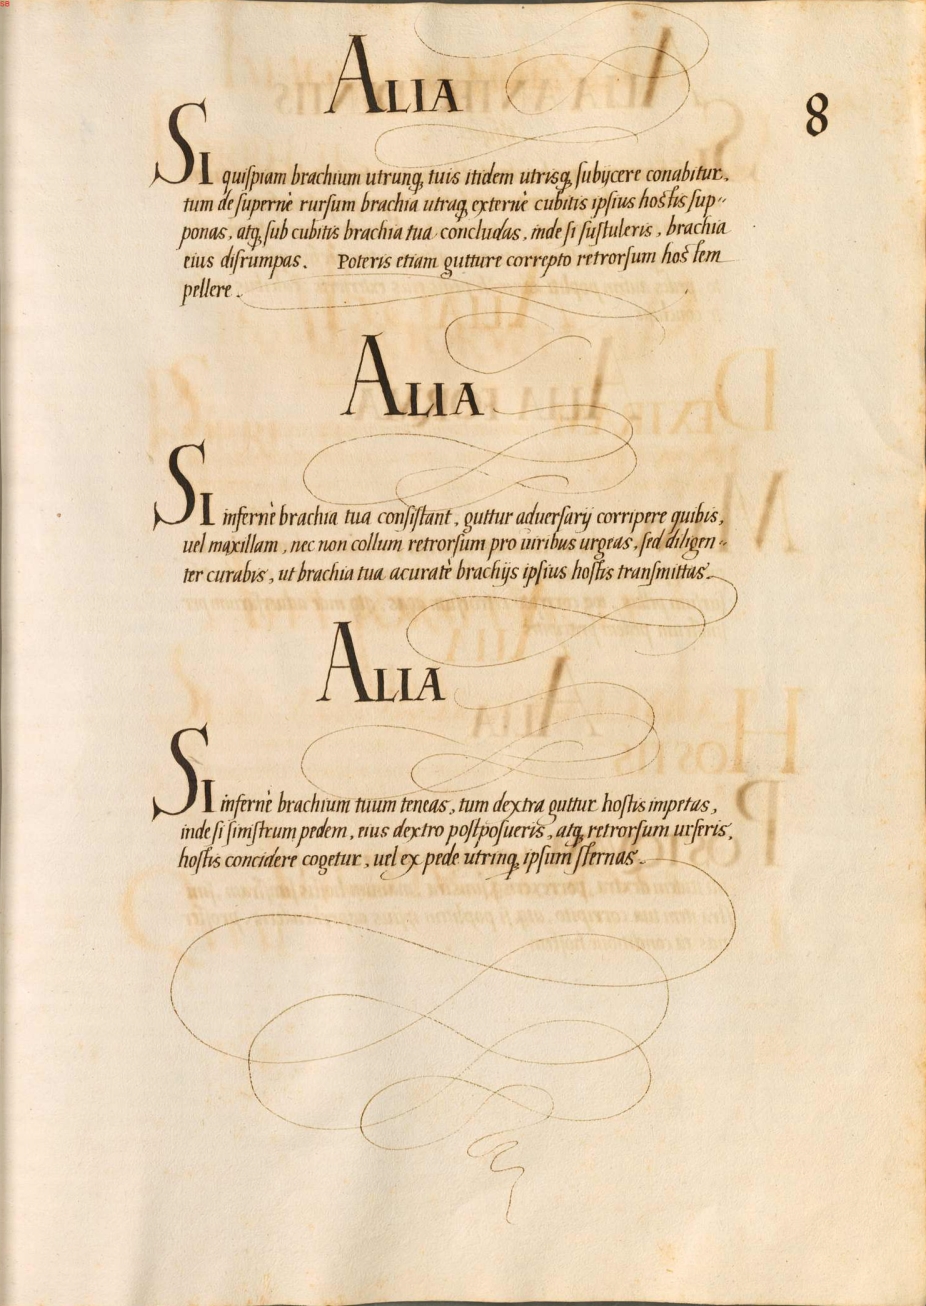 ALIA
8
SI quiſpiam brachium utrunq, tuis itidem utrisq, ſubijcere conabitur,
tum de ſupernè rurſum brachia utraq, externè cubitis ipſius hoſtis ſup-
ponas, atq, ſub cubitis brachia tua concludas, inde ſi ſuſtuleris, brachia
eius diſrumpas. Poteris etiam gutture correpto retrorſum hoſtem
pellere.
ALIA
SI infernè brachia tua conſiſtant, guttur aduerſarij corripere quibis,
uel maxillam, nec non collum retrorſum pro uiribus urgeas, ſed diligen-
ter curabis, ut brachia tua acuratè brachijs ipſius hoſtis tranſmittas.
ALIA
SI infernè brachium tuum teneas, tum dextra guttur hoſtis impetas,
inde ſi ſiniſtrum pedem, eius dextro poſtpoſueris, atq, retrorſum urſeris,
hoſtis concidere cogetur, uel ex pede utrinq, ipſum ſternas.